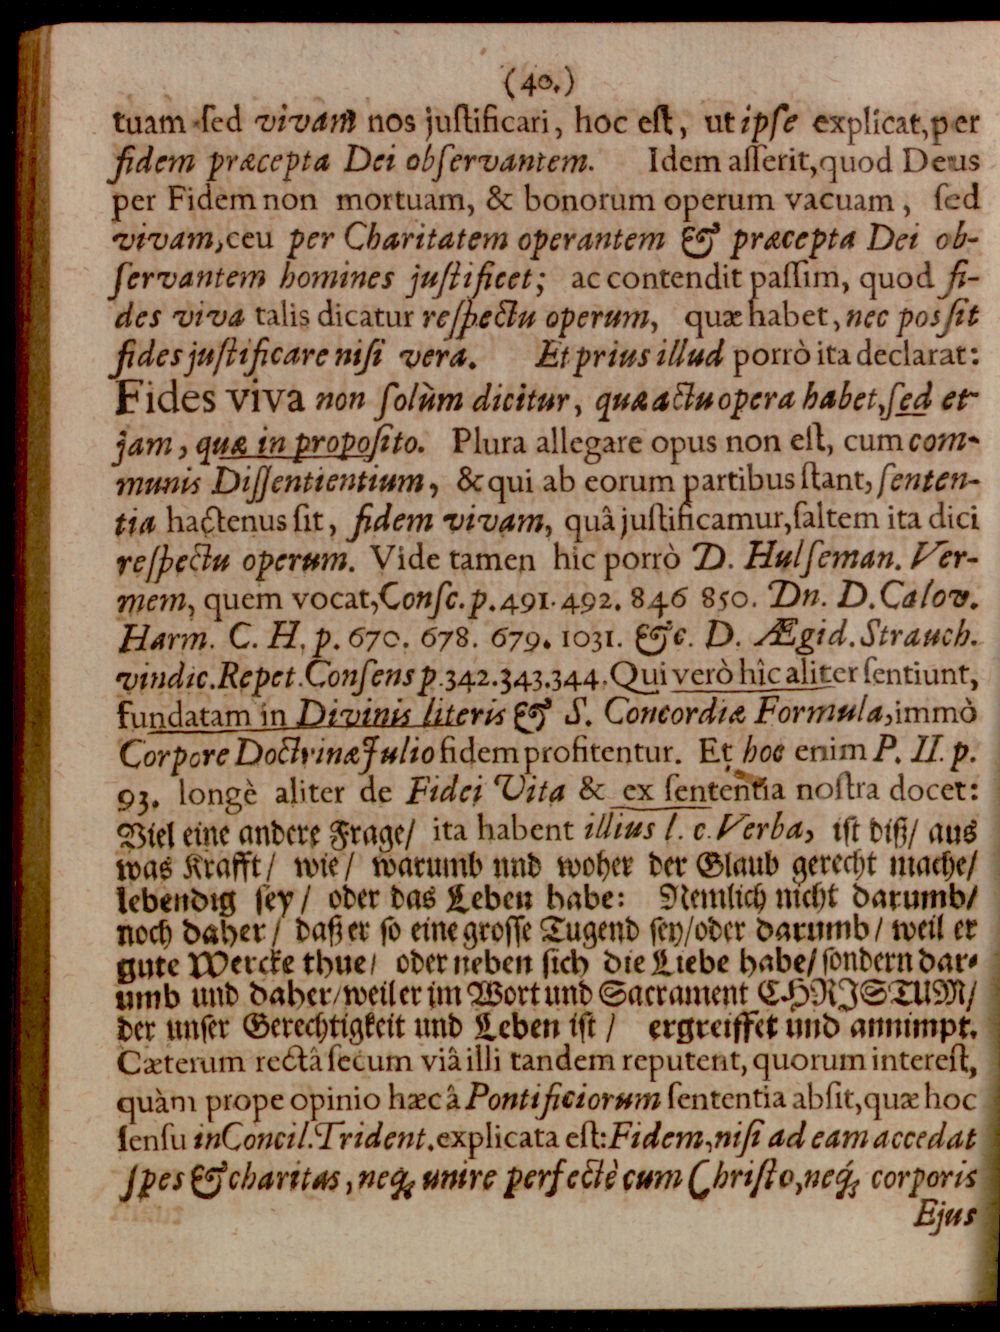 (40.)
tuam sed vivam nos juſtificari, hoc eſt, ut ipſe explicat, per
fidem præcepta Dei obſervantem. Idem aſſerit, quod Deus
per Fidem non mortuam, & bonorum operum vacuam, ſed
vivam, ceu per Charitatem operantem & præcepta Dei ob-
ſervantem homines juſtificet; ac contendit paſſim, quod fi-
des viva talis dicatur reſpectu operum, quæ habet, nec posſit
fides juſtificare niſi vera. Et prius illud porrò ita declarat:
Fides viva non ſolùm dicitur, quæ actu opera habet, ſed et
jam, quæ in propoſito. Plura allegare opus non eſt, cum com-
munis Diſſentientium, & qui ab eorum partibus ſtant, ſenten-
tia hactenus ſit, fidem vivam, quâ juſtificamur, ſaltem ita dici
reſpectu operum. Vide tamen hic porrò D. Hulſeman. Ver-
mem, quem vocat, Conſc. p. 491. 492. 846 850. Dn. D. Calov.
Harm. C. H. p. 670. 678. 679. 1031. &c. D. Ægid. Strauch.
vindic. Repet. Conſens p. 342. 343. 344. Qui verò hîc aliter ſentiunt,
fundatam in Divinis literis & S. Concordiæ Formula, immò
Corpore Doctrinæ Julio fidem profitentur. Et hoc enim P. II. p.
93. longè aliter de Fidei Vita & ex ſententia noſtra docet:
Viel eine andere Frage/ ita habent illius l. c. Verba, iſt diß/ aus
was Krafft/ wie/ warumb und woher der Glaub gerecht mache/
lebendig ſey/ oder das Leben habe: Nemlich nicht darumb/
noch daher/ daß er ſo eine groſſe Tugend ſey/ oder darumb/ weil er
gute Wercke thue/ oder neben ſich die Liebe habe/ ſondern dar-
umb und daher/ weil er im Wort und Sacrament CHRISTUM/
der unſer Gerechtigkeit und Leben iſt/ ergreiffet und annimpt.
Cæterum rectâ ſecum viâ illi tandem reputent, quorum intereſt,
quàm prope opinio hæc â Pontificiorum ſententia abſit, quæ hoc
ſenſu in Concil. Trident. explicata eſt: Fidem, niſi ad eam accedat
ſpes & charitas, neq; unire perfectè cum Chriſto, neq́; corporis
Ejus